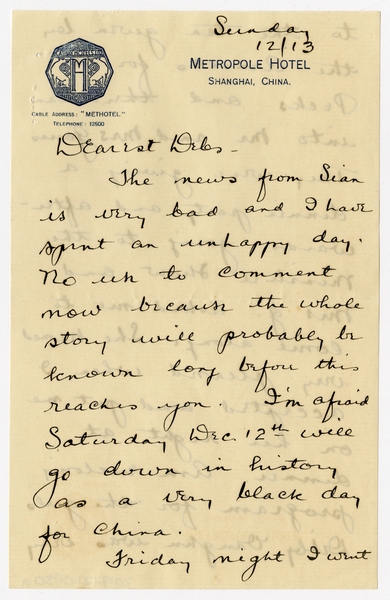 Sunday
12/13
METROPOLE HOTEL
SHANGHAI, CHINA.
CABLE ADDRESS: "METHOTEL"
TELEPHONE: 12500
Dearest Debs-
The news from Sian
is very bad and I have
spent an unhappy day.
No use to comment
now because the whole
story will probably be
known long before this
reaches you. I'm afraid
Saturday Dec. 12th will
go down in history
as a very black day
for China.
Friday night I went